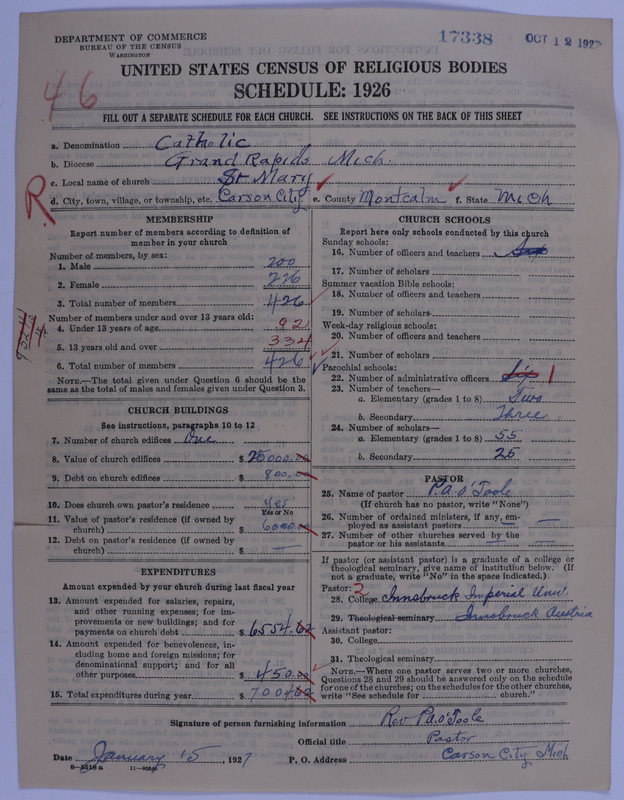 DEPARTMENT OF COMMERCE
BUREAU OF THE CENSUS
WASHINGTON
17338 OCT 12 1927
UNITED STATES CENSUS OF RELIGIOUS BODIES
SCHEDULE: 1926
46
FILL OUT A SEPARATE SCHEDULE FOR EACH CHURCH. SEE INSTRUCTIONS ON THE BACK OF THIS SHEET
a. Denomination Catholic
b. Diocese Grand Rapids Mich.
c. Local name of church St Mary
R
d. City, town, village, or township, etc. Carson City e. County Montcalm f. State Mich
MEMBERSHIP
Report number of members according to definition of
member in your church
Number of members, by sex:
1. Male 200
2. Female 226
3. Total number of members 426
Number of members under and over 13 years old:
4. Under 13 years of age 92
5. 13 years old and over 334
6. Total number of members 426
NOTE.—The total given under Question 6 should be the
same as the total of males and females given under Question 3.
CHURCH BUILDINGS
See instructions, paragraphs 10 to 12
7. Number of church edifices One
8. Value of church edifices $ 20000.00
9. Debt on church edifices $ 800.00
10. Does church own pastor's residence Yes
Yes or No
11. Value of pastor's residence (if owned by
church) $ 6000.00
12. Debt on pastor's residence (if owned by
church) $ —
EXPENDITURES
Amount expended by your church during last fiscal year
13. Amount expended for salaries, repairs,
and other running expenses; for im-
provements or new buildings; and for
payments on church debt $ 6554.62
14. Amount expended for benevolences, in-
cluding home and foreign missions; for
denominational support; and for all
other purposes $ 450.00
15. Total expenditures during year $ 7004.62
CHURCH SCHOOLS
Report here only schools conducted by this church
Sunday schools:
16. Number of officers and teachers
17. Number of scholars
Summer vacation Bible schools:
18. Number of officers and teachers
19. Number of scholars
Week-day religious schools:
20. Number of officers and teachers
21. Number of scholars
Parochial schools:
22. Number of administrative officers 1
23. Number of teachers—
a. Elementary (grades 1 to 8) Two
b. Secondary Three
24. Number of scholars—
a. Elementary (grades 1 to 8) 55
b. Secondary 25
PASTOR
25. Name of pastor P.A. O'Toole
(If church has no pastor, write "None")
26. Number of ordained ministers, if any, em-
ployed as assistant pastors —
27. Number of other churches served by the
pastor or his assistants —
If pastor (or assistant pastor) is a graduate of a college or
theological seminary, give name of institution below. (If
not a graduate, write "No" in the space indicated.)
Pastor: 2
28. College Innsbruck Imperial Univ.
29. Theological seminary Innsbruck Austria
Assistant pastor:
30. College
31. Theological seminary
NOTE.—Where one pastor serves two or more churches,
Questions 28 and 29 should be answered only on the schedule
for one of the churches; on the schedules for the other churches,
write "See schedule for church."
Signature of person furnishing information Rev P.A. O'Toole
Official title Pastor
Date January 15, 1927 P. O. Address Carson City Mich